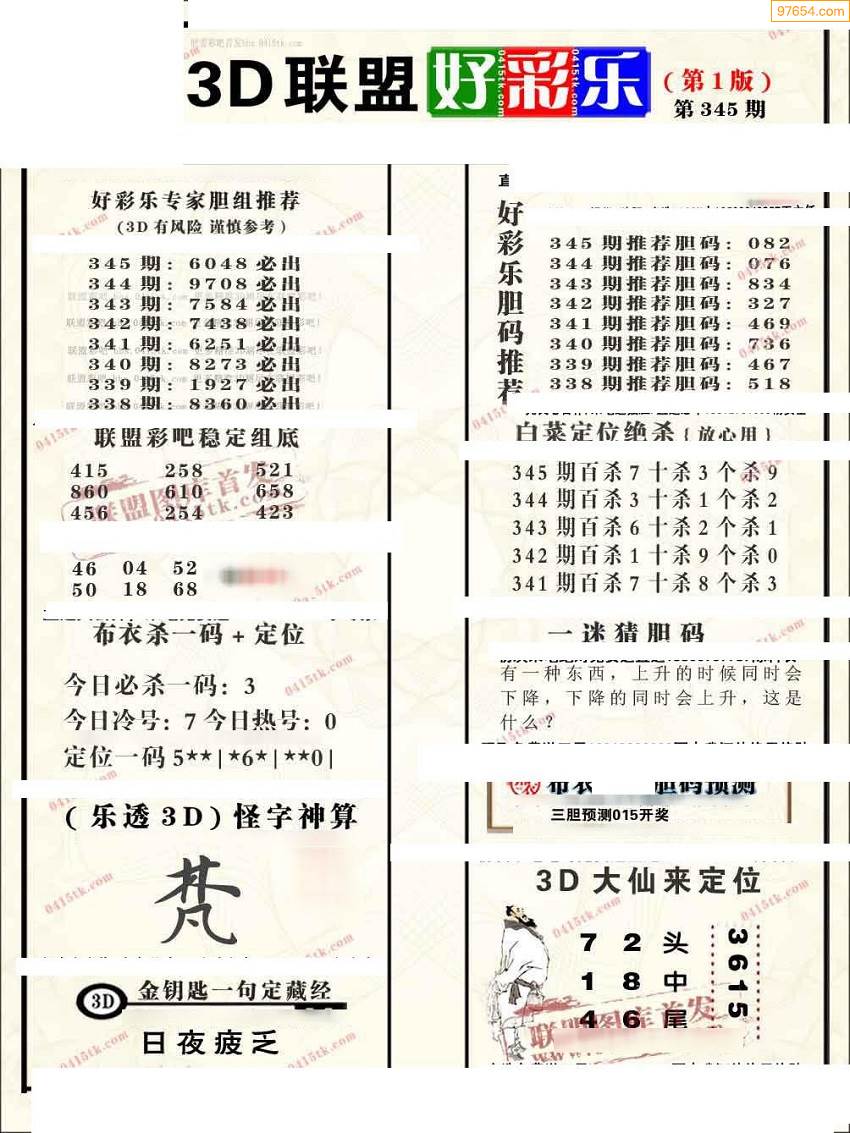 97654.com
3D联盟好彩乐
(第1版)
第345期
好彩乐专家胆组推荐
(3D有风险 谨慎参考)
345期: 6048必出
344期: 9708必出
343期: 7584必出
342期: 7438必出
341期: 6251必出
340期: 8273必出
339期: 1927必出
338期: 8360必出
联盟彩吧稳定组底
415 258 521
860 610 658
456 254 423
46 04 52
50 18 68
布衣杀一码+定位
今日必杀一码: 3
今日冷号: 7 今日热号: 0
定位一码5**|*6*|**0|
(乐透3D)怪字神算
梵
3D 金钥匙一句定藏经
日夜疲乏
好彩乐胆码推荐
345期推荐胆码: 082
344期推荐胆码: 076
343期推荐胆码: 834
342期推荐胆码: 327
341期推荐胆码: 469
340期推荐胆码: 736
339期推荐胆码: 467
338期推荐胆码: 518
白菜定位绝杀{放心用}
345期百杀7十杀3个杀9
344期百杀3十杀1个杀2
343期百杀6十杀2个杀1
342期百杀1十杀9个杀0
341期百杀7十杀8个杀3
一迷猜胆码
有一种东西，上升的时候同时会
下降，下降的同时会上升，这是
什么?
布衣 胆码预测
三胆预测015开奖
3D大仙来定位
7 2 头
1 8 中
4 6 尾
3615
联盟图库首发
0415tk.com